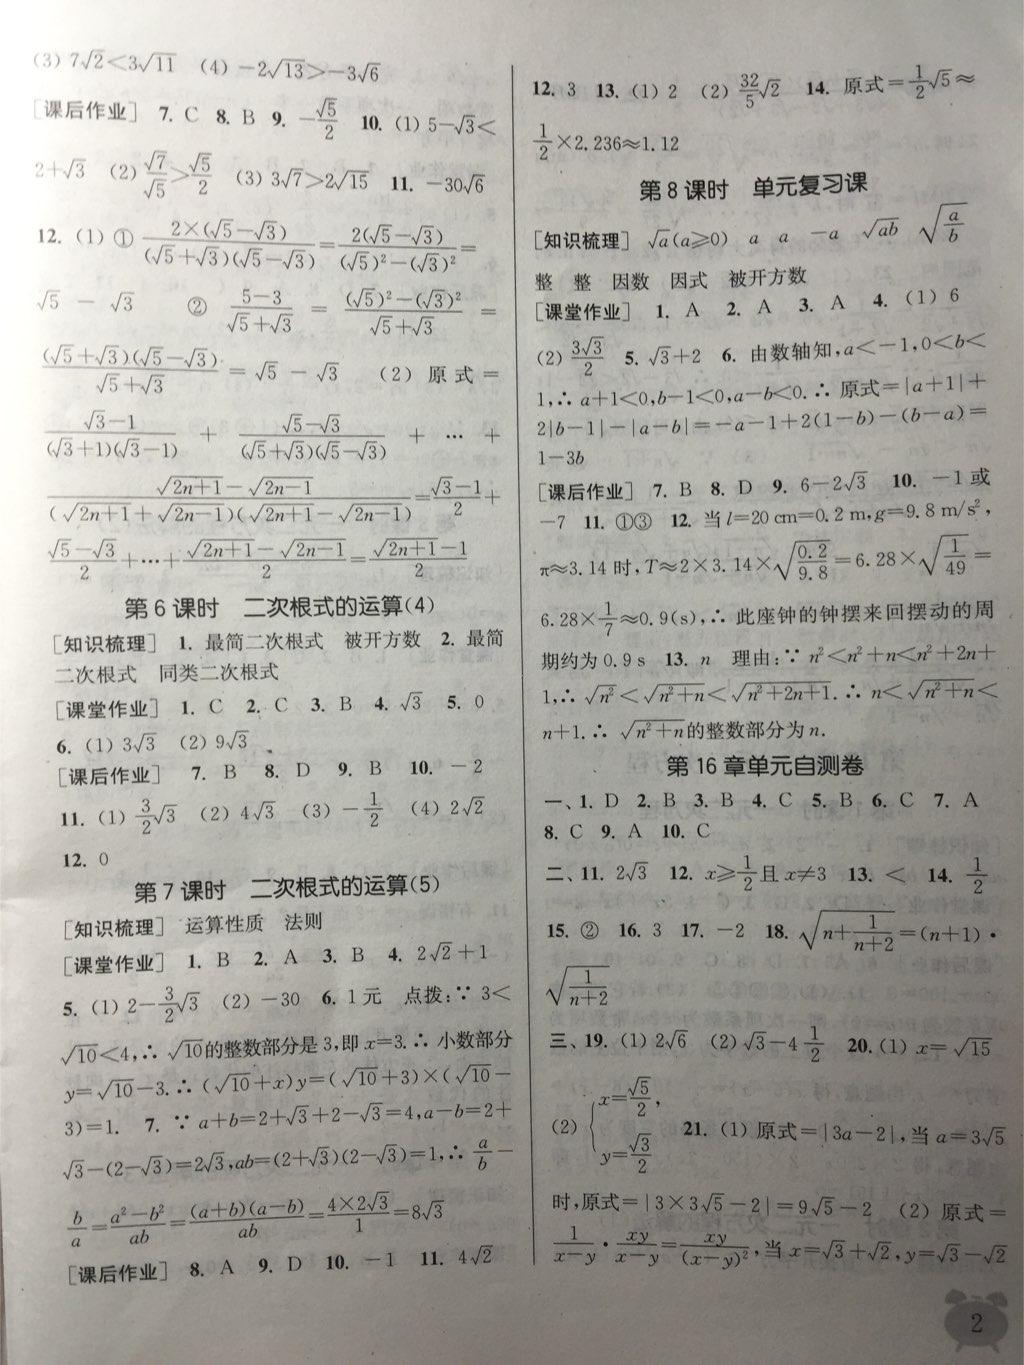 (3) 7√2<3√11 (4) −2√13>−3√6
[课后作业] 7. C 8. B 9. −√5/2 10. (1) 5−√3<
2+√3 (2) √7/√5>√5/2 (3) 3√7>2√15 11. −30√6
12. (1) ① 2×(√5−√3)/((√5+√3)(√5−√3))=2(√5−√3)/((√5)²−(√3)²)=
√5 − √3 ② (5−3)/(√5+√3) = ((√5)²−(√3)²)/(√5+√3) =
(√5+√3)(√5−√3)/(√5+√3) = √5 − √3 (2) 原式=
(√3−1)/((√3+1)(√3−1)) + (√5−√3)/((√5+√3)(√5−√3)) + … +
(√(2n+1)−√(2n−1))/((√(2n+1)+√(2n−1))(√(2n+1)−√(2n−1)))=(√3−1)/2+
(√5−√3)/2+…+(√(2n+1)−√(2n−1))/2=(√(2n+1)−1)/2
第6课时 二次根式的运算(4)
[知识梳理] 1. 最简二次根式 被开方数 2. 最简
二次根式 同类二次根式
[课堂作业] 1. C 2. C 3. B 4. √3 5. 0
6. (1) 3√3 (2) 9√3
[课后作业] 7. B 8. D 9. B 10. −2
11. (1) 3/2√3 (2) 4√3 (3) −1/2 (4) 2√2
12. 0
第7课时 二次根式的运算(5)
[知识梳理] 运算性质 法则
[课堂作业] 1. B 2. A 3. B 4. 2√2+1
5. (1) 2−3/2√3 (2) −30 6. 1元 点拨:∵ 3<
√10<4,∴ √10的整数部分是3,即x=3.∴ 小数部分
y=√10−3.∴ (√10+x)y=(√10+3)×(√10−
3)=1. 7. ∵ a+b=2+√3+2−√3=4,a−b=2+
√3−(2−√3)=2√3,ab=(2+√3)(2−√3)=1,∴ a/b−
b/a=(a²−b²)/ab=(a+b)(a−b)/ab=(4×2√3)/1=8√3
[课后作业] 8. A 9. D 10. −1 11. 4√2
12. 3 13. (1) 2 (2) 32/5√2 14. 原式=1/2√5≈
1/2×2.236≈1.12
第8课时 单元复习课
[知识梳理] √a(a≥0) a a −a √ab √(a/b)
整 整 因数 因式 被开方数
[课堂作业] 1. A 2. A 3. A 4. (1) 6
(2) 3√3/2 5. √3+2 6. 由数轴知,a<−1,0<b<
1,∴ a+1<0,b−1<0,a−b<0.∴ 原式=|a+1|+
2|b−1|−|a−b|=−a−1+2(1−b)−(b−a)=
1−3b
[课后作业] 7. B 8. D 9. 6−2√3 10. −1或
−7 11. ①③ 12. 当l=20 cm=0.2 m,g=9.8 m/s²,
π≈3.14时,T≈2×3.14×√(0.2/9.8)=6.28×√(1/49)=
6.28×1/7≈0.9(s),∴ 此座钟的钟摆来回摆动的周
期约为0.9 s 13. n 理由:∵ n²<n²+n<n²+2n+
1,∴ √n²<√(n²+n)<√(n²+2n+1).∴ n<√(n²+n)<
n+1.∴ √(n²+n)的整数部分为n.
第16章单元自测卷
一、1. D 2. B 3. B 4. C 5. B 6. C 7. A
8. C 9. A 10. C
二、11. 2√3 12. x≥1/2且x≠3 13. < 14. 1/2
15. ② 16. 3 17. −2 18. √(n+1/(n+2))=(n+1)·
√(1/(n+2))
三、19. (1) 2√6 (2) √3−4 1/2 20. (1) x=√15
(2) {x=√5/2, y=√3/2 21. (1) 原式=|3a−2|,当a=3√5
时,原式=|3×3√5−2|=9√5−2 (2) 原式=
1/(x−y)·xy/(x−y)=xy/(x−y)²,当x=√3+√2,y=√3−√2
2